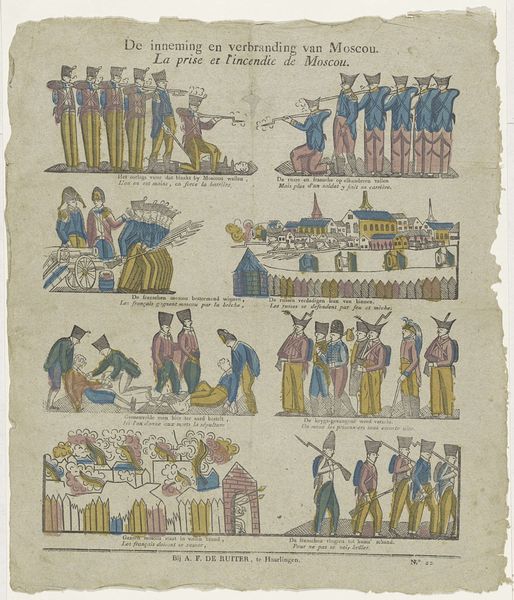 De inneming en verbranding van Moscou.
La prise et l'incendie de Moscou.
Het oorlogs vuur dat blaakt by Moscous wallen,
L'on en est mains, on force la barrière.
De russe en fransche op elkanderen vallen
Mais plus d'un soldat y finit sa carrière.
De franschen moscou bestormend winnen,
Les français gagnent moscou par la brêche,
De russen verdedigen hun van binnen,
Les russes se defendent par feu et mêche,
Gesneuvelde men hier ter aard bestelt,
Ici l'on donne aux morts la sépulture
De krygs-gevangene word verzeld.
On mene les prisonniers sous escorte sûre.
Gansch moscou staat in vollen brand,
Les français doivent se sauver,
De franschen vlugten tot hunn' schand.
Pour ne pas se voir brûler.
Bij A. F. DE RUITER, te Haarlingen.
N.º 22